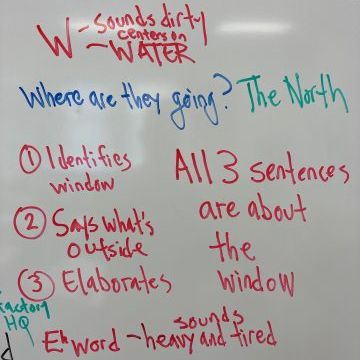 W - sounds dirty
centers on
- WATER
Where are they going? The North
① Identifies
window
② Says what's
outside
③ Elaborates
All 3 sentences
are about
the
window
factory
HQ
sounds
Ek word - heavy and tired